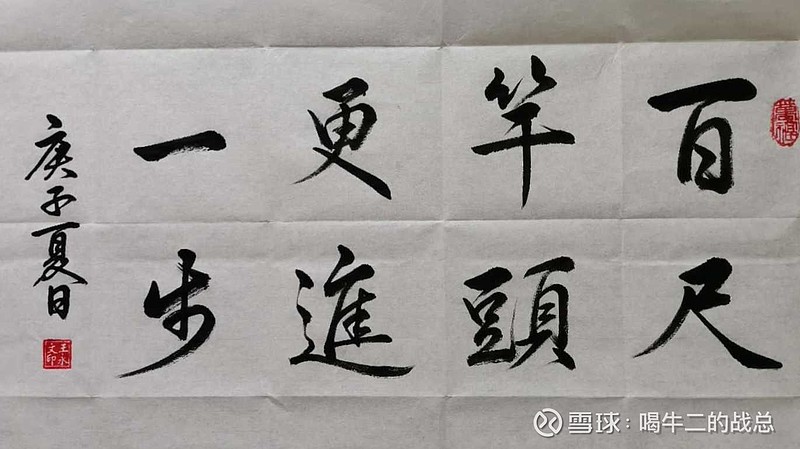 百尺
竿頭
更進
一步
庚子夏日
王永
文印
雪球：喝牛二的战总